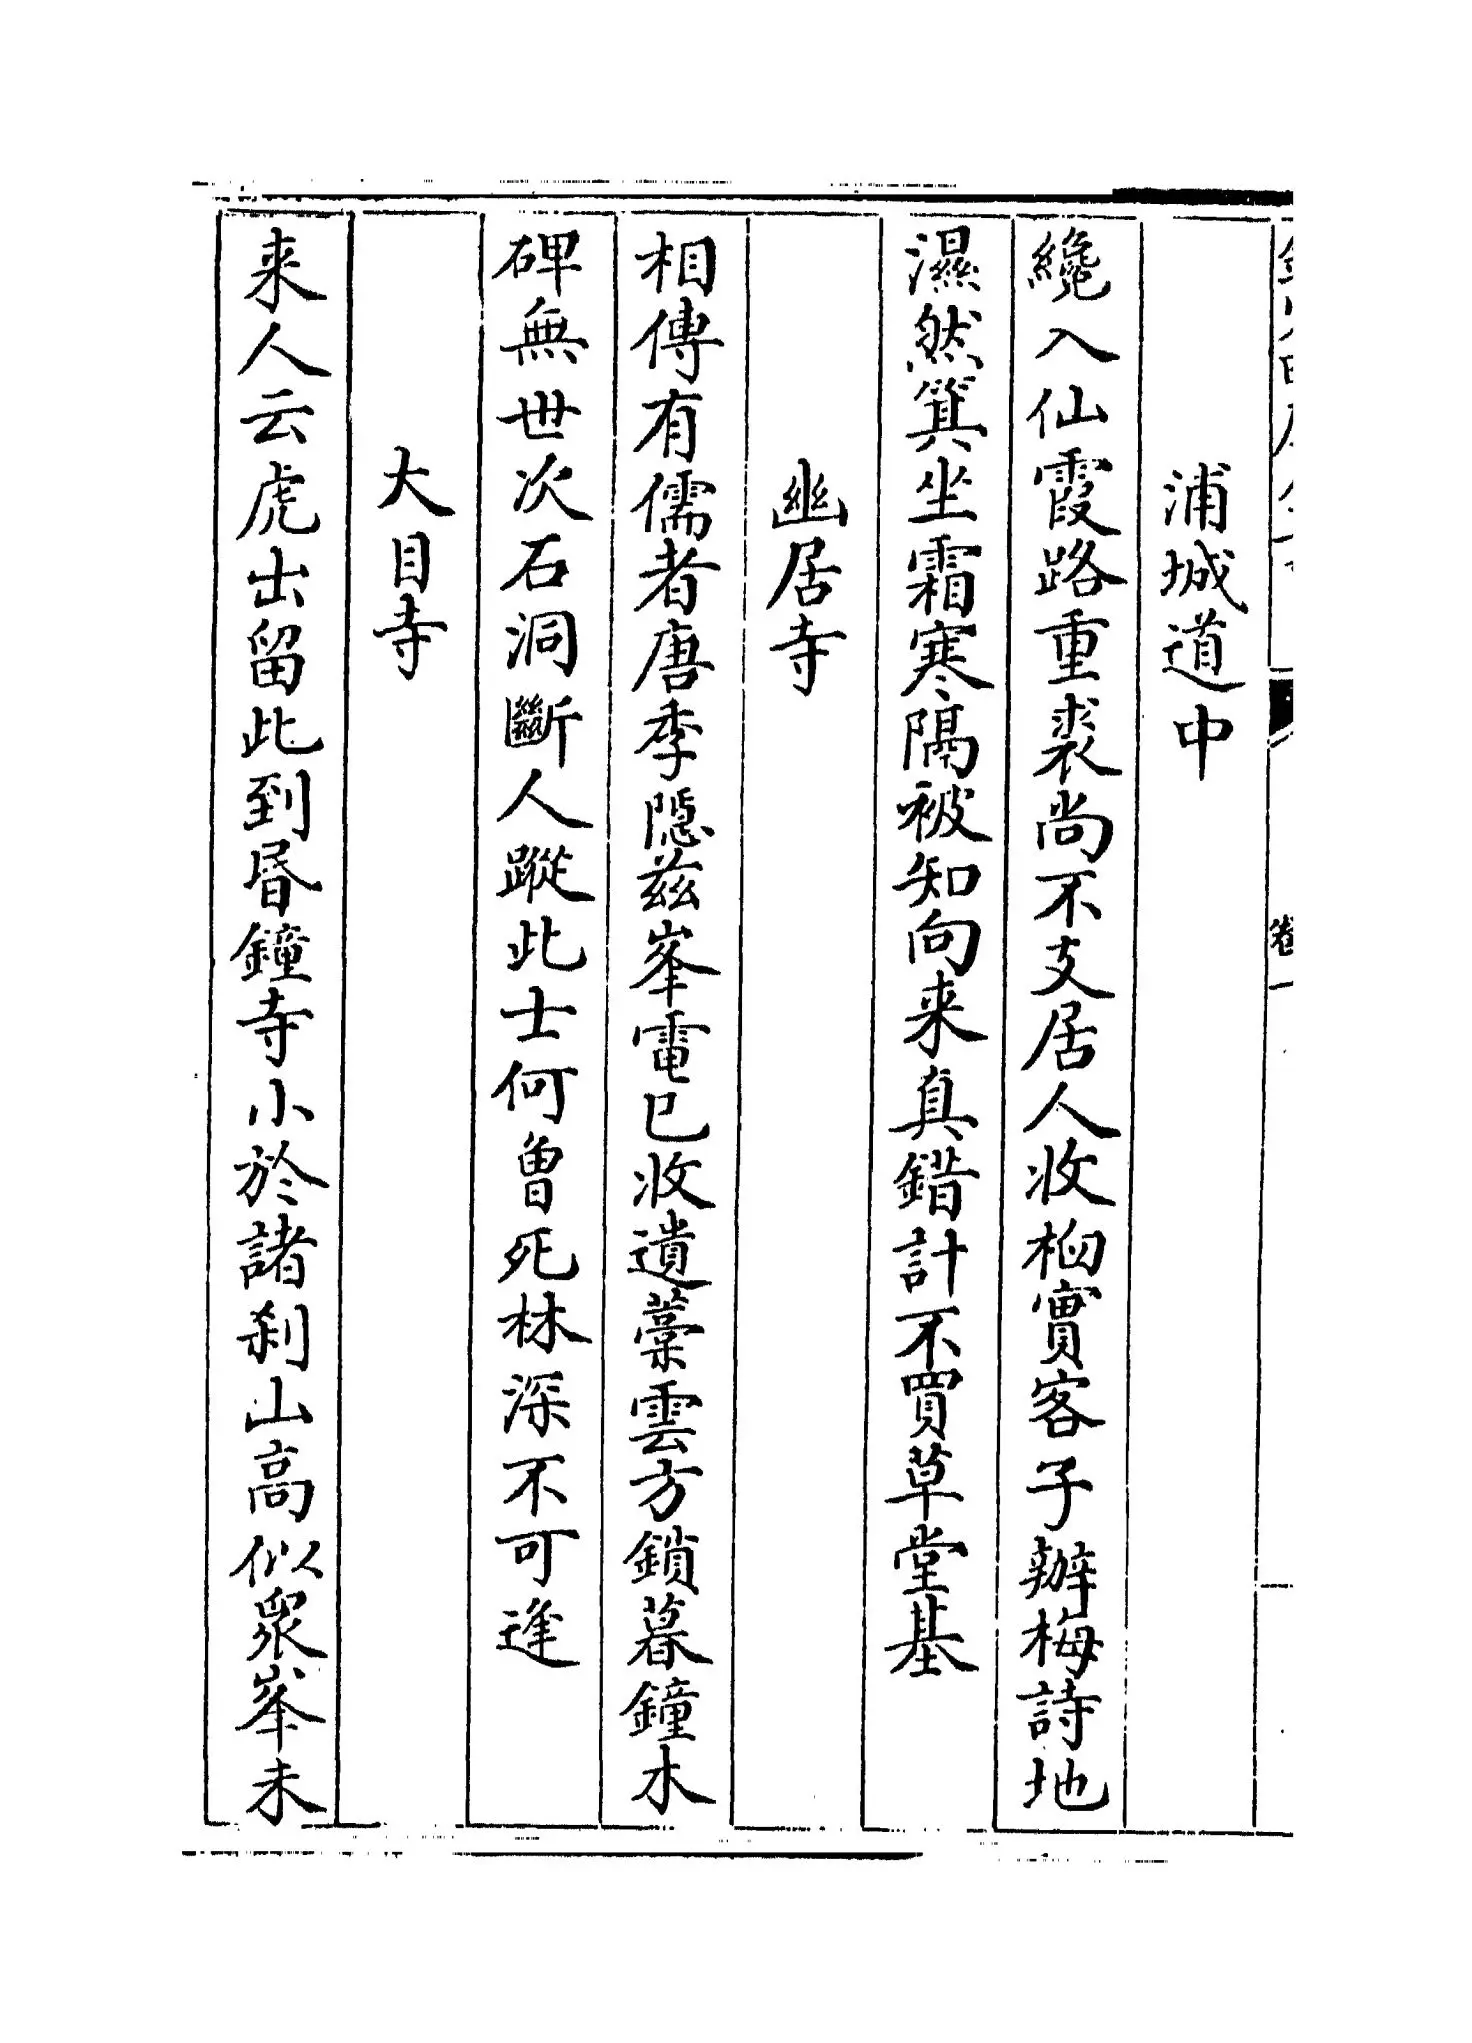 卷一
浦城道中
纔入仙霞路重裘尚不支居人收桕實客子辦梅詩地
濕然箕坐霜寒隔被知向来真錯計不買草堂基
幽居寺
相傳有儒者唐季隱兹峯電已收遺藁雲方鎖暮鐘木
碑無世次石洞斷人蹤此士何曾死林深不可逢
大目寺
来人云虎出留此到昬鐘寺小於諸刹山高似衆峯未